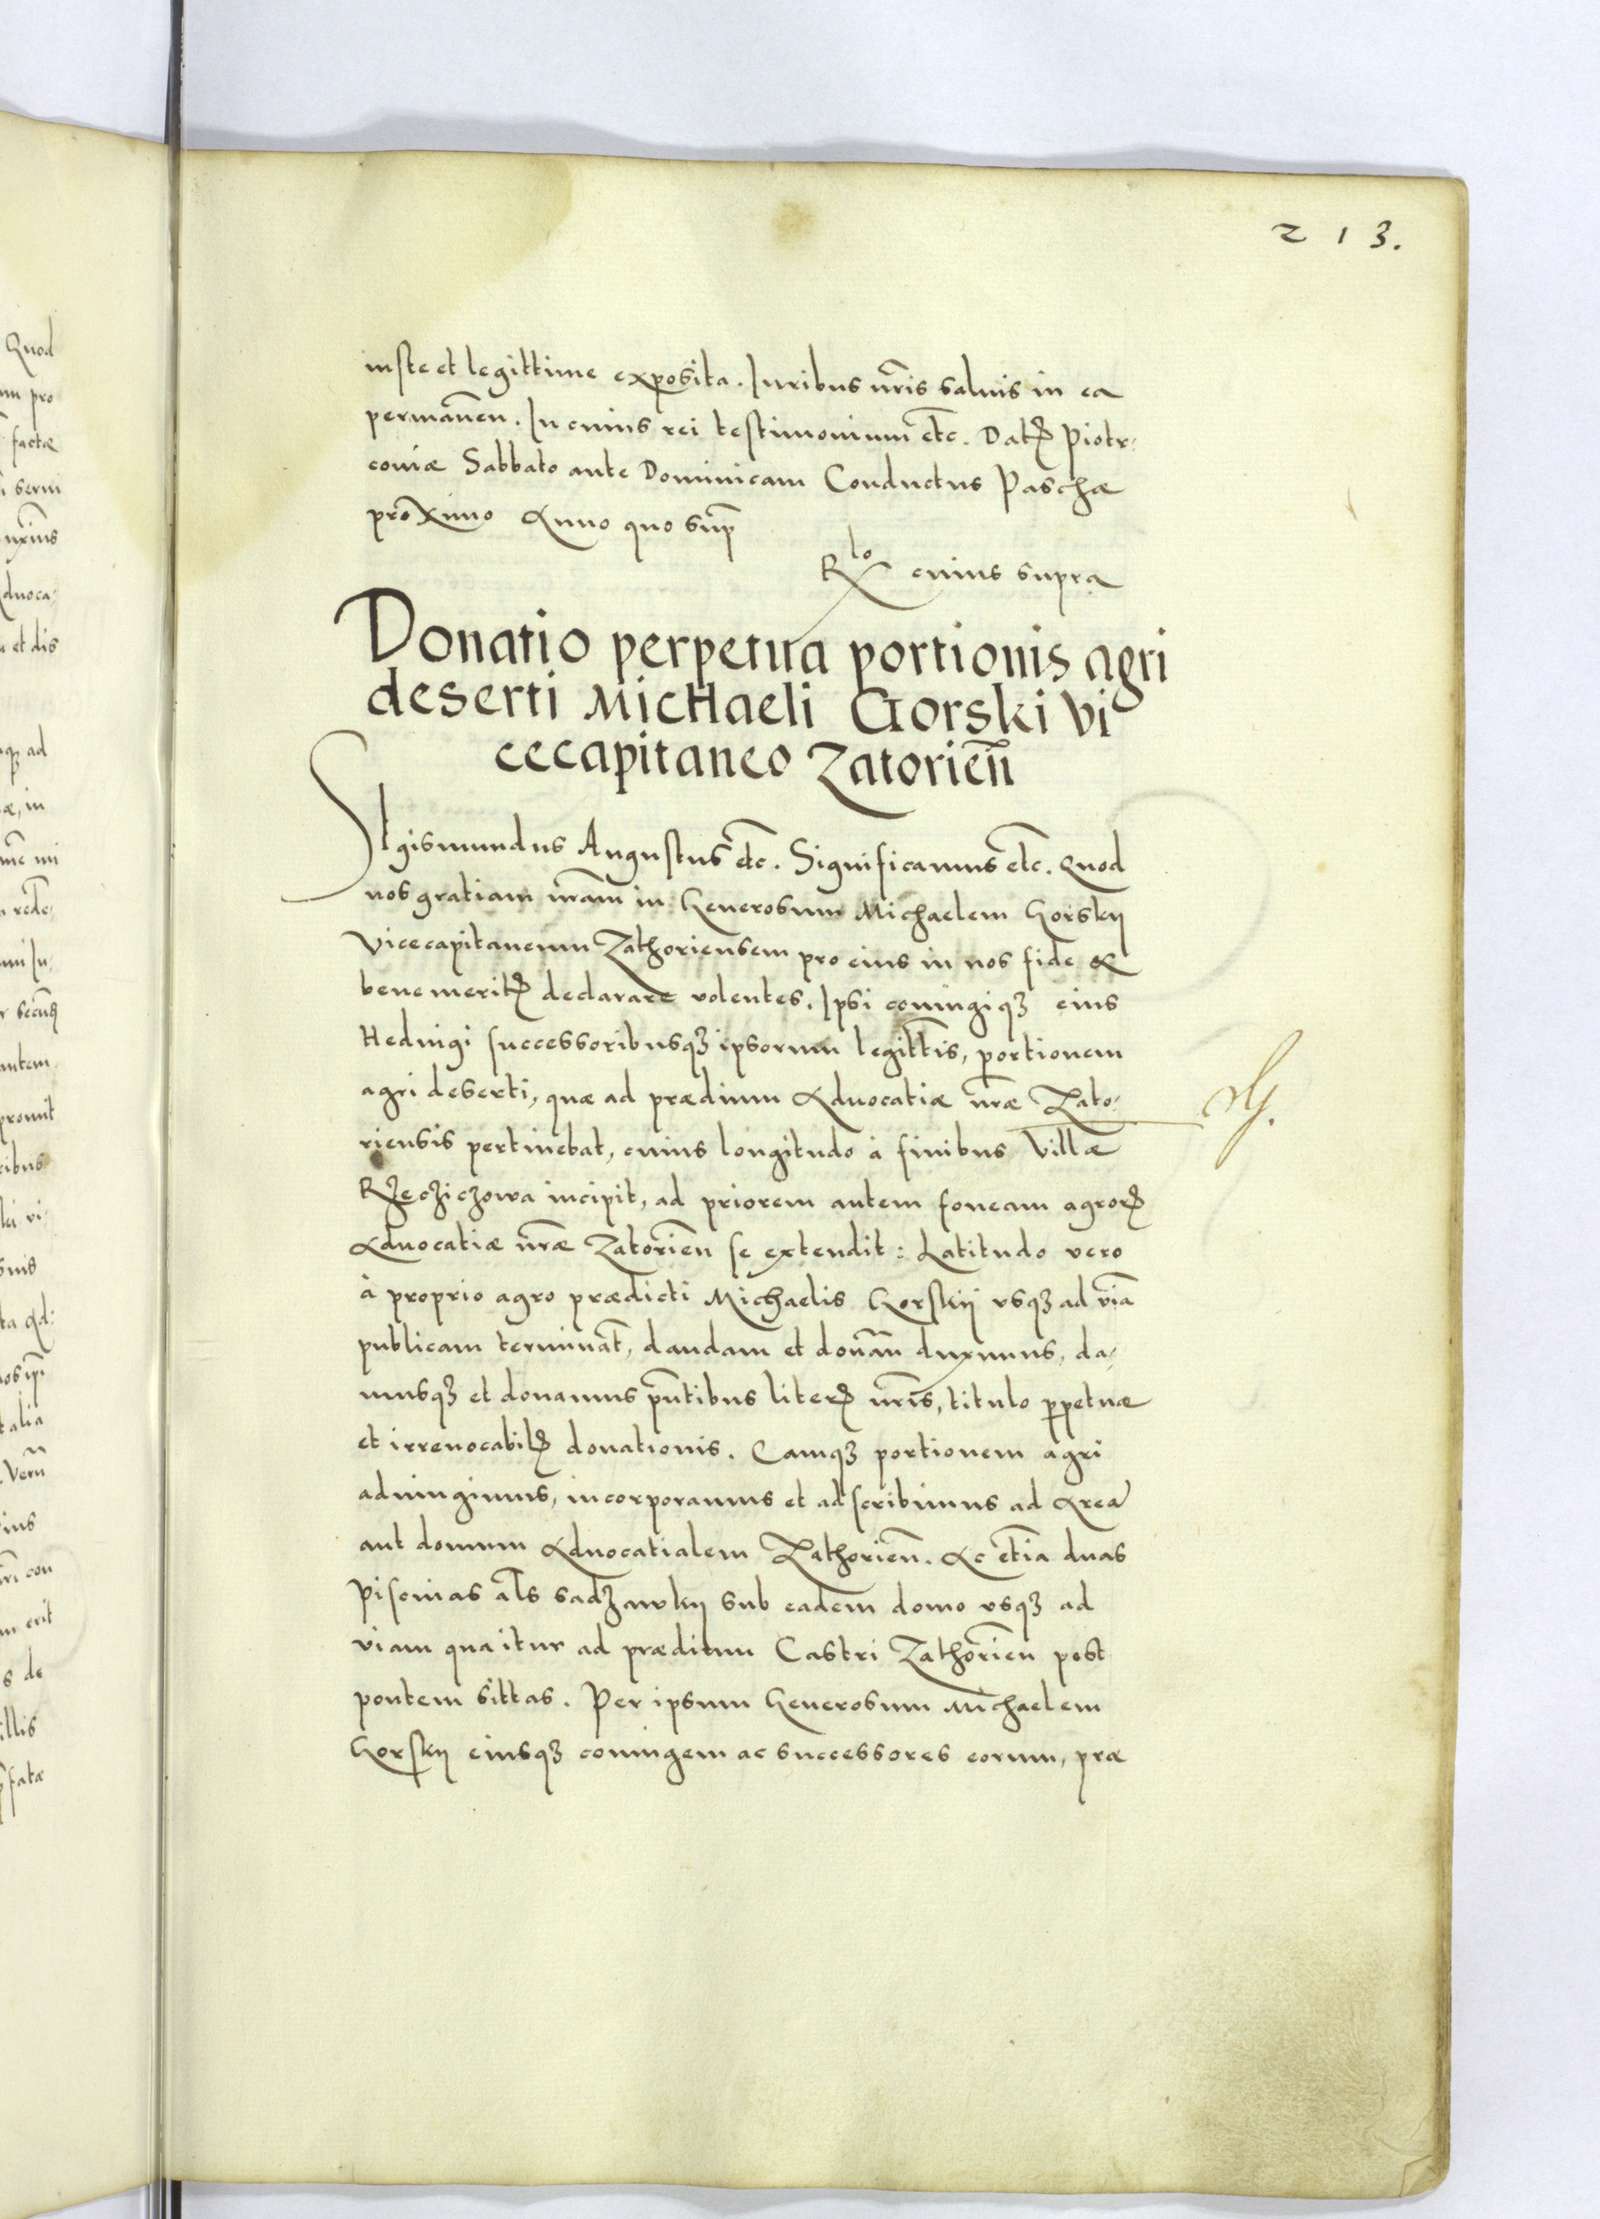 213.
iuste et legittime exposita. Iuribus nr̃is saluis in ea
permanen̄. In cuius rei testimonium etc̃. Datꝭ Piotr⸗
coniæ Sabbato ante Dominicam Conductus Paschæ
proximo Anno quo sup̃
Rlo cuius supra
Donatio perpetua portionis agri
deserti Michaeli Gorski vi
cecapitaneo Zatorien̄
Sigismundus Augustus etc̃. Significamus etc̃. Quod
nos gratiam nr̃am in Generosum Michaelem Gorskij
Vicecapitaneum Zathoriensem pro eius in nos fide &
bene meritꝭ declarare volentes. Ipsi coniugiqꝫ eius
Heduigi successoribusqꝫ ipsorum legitt̃is, portionem
agri deserti, quæ ad prædium Aduocatiæ nr̃æ Zato⸗
riensis pertinebat, cuius longitudo à finibus Villæ
Rzecziczowa incipit, ad priorem autem foueam agrorꝭ
Aduocatiæ nr̃æ Zatorien̄ se extendit: Latitudo vero
à proprio agro prædicti Michaelis Gorskij vsqꝫ ad viā
publicam terminat̃, dandam et donan̄ duximus, da⸗
musqꝫ et donamus pn̄tibus literꝭ nr̃is, titulo ꝑpetuæ
et irreuocabilꝭ donationis. Eamqꝫ portionem agri
adiungimus, incorporamus et adscribimus ad Areā
aut domum Aduocatialem Zathorien̄. Ac etiā duas
Piscinas al̃s sadzawkij sub eadem domo vsqꝫ ad
viam qua itur ad prædium Castri Zathorien̄ post
pontem sittas. Per ipsum Generosum Michaelem
Gorskij eiusqꝫ coniugem ac successores eorum, præ